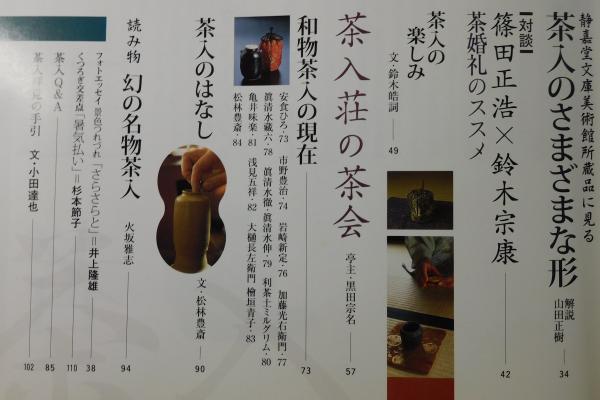 静嘉堂文庫美術館所蔵品に見る
茶入のさまざまな形
解説 山田正樹 34
【対談】
篠田正浩×鈴木宗康
茶婚礼のススメ 42
茶入の楽しみ
文・鈴木皓詞 49
茶入荘の茶会
亭主・黒田宗名 57
和物茶入の現在 73
安食ひろ・73 市野豊治・74 岩崎新定・76 加藤光右衛門・77
眞清水蔵六・78 眞清水徹・眞清水伸・79 利茶土ミルグリム・80
亀井味楽・81 浅見五祥・82 大樋長左衛門 檜垣青子・83
松林豊斎・84
茶入のはなし
文・松林豊斎 90
読み物 幻の名物茶入 火坂雅志 94
フォトエッセイ 景色つれづれ「さらさらと」=井上隆雄 38
くつろぎ交差点「暑気払い」=杉本節子 110
茶入Q&A 85
茶入拝見の手引 文・小田達也 102